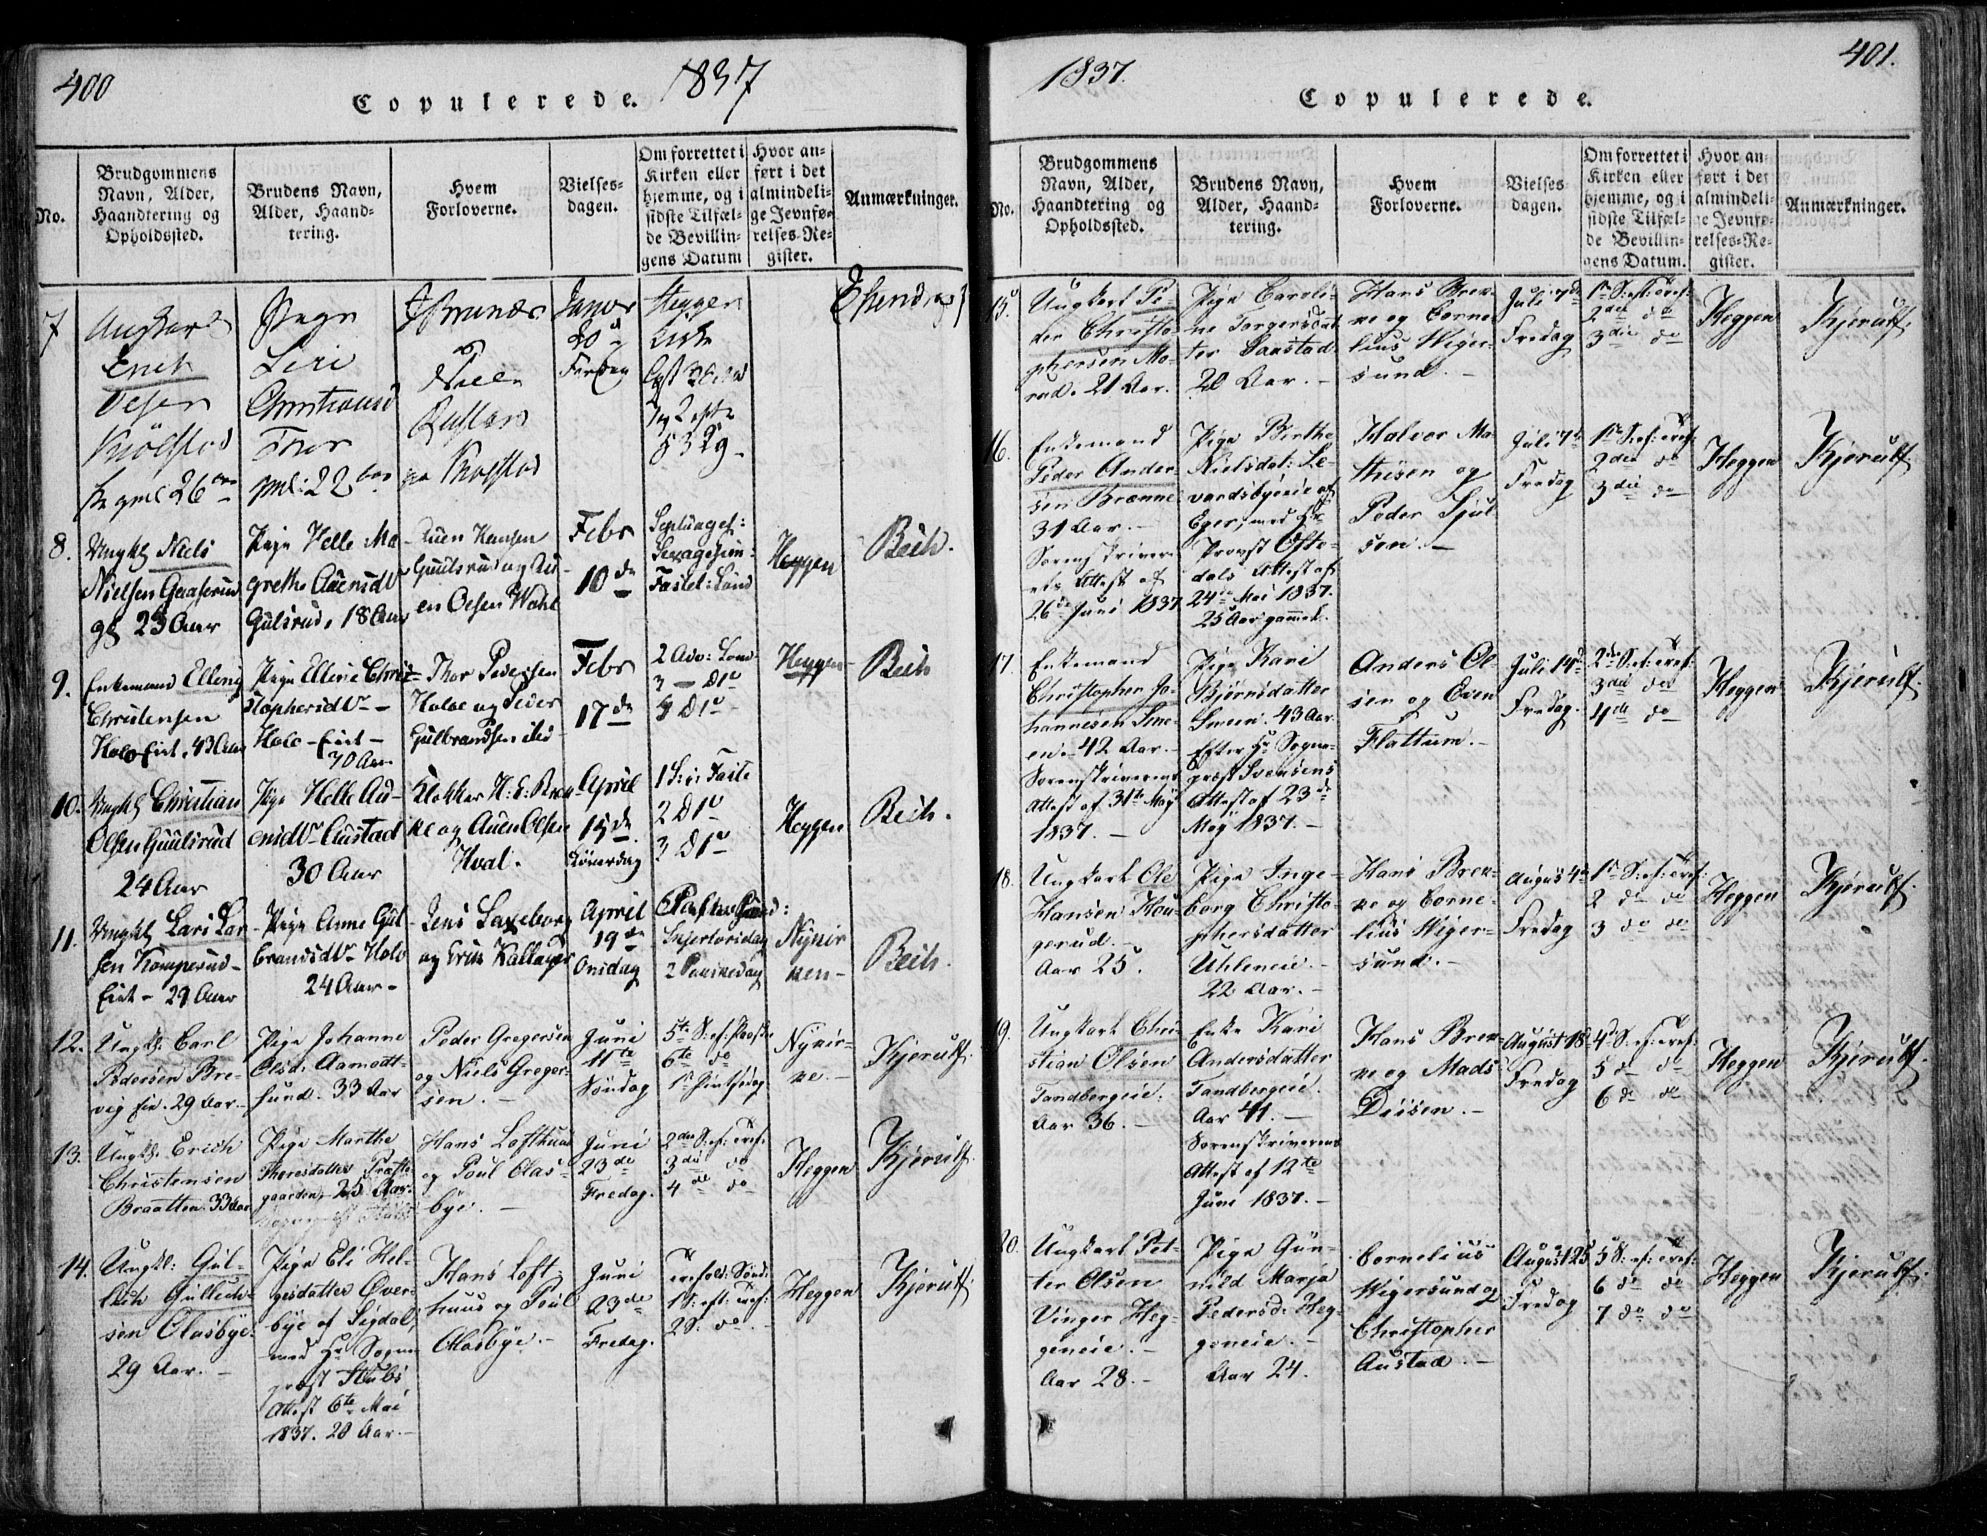 400
Copulerede.
1837
No.
Brudgommens
Navn, Alder,
Haandtering og
Opholdssted.
Brudens Navn,
Alder, Haand-
tering.
Hvem
Forloverne.
Vielses-
dagen.
Om forrettet i
Kirken eller
hjemme, og i
sidste Tilfæl-
de Bevillin-
gens Datum
Hvor an-
ført i det
almindeli-
ge Jevnfø-
relses-Re-
gister.
Anmærkninger.
7
Ungkarl
Erich
Olsen
Pige
Siri
gml: 22
20
Fredag
8.
Ungkl Niels
Nielsen Gaaserud
23 Aar
Pige Helle Ma-
grethe Auensdtr
Gulsrud, 18 Aar
Auen Hansen
Guulsrud og Au-
en Olsen Wahl
Febr
10de
Septuages:
Sexagesim:
Fastel: Sønd
Heggen
Bech.
9.
Enkemand Elling
Christensen
Holo-Eiet, 43 Aar
Pige Ellene Chris-
stophersdtr
Holo-Eiet
70 Aar
Thor Pedersen
Holoe og Peder
Gulbrandsen ibid
Febr
17de
Heggen
Bech
10.
Ungkl Christian
Olsen Guulsrud
24 Aar
Pige Helle Au-
ensdtr Austad
30 Aar
Klokker H. E. Bren-
ne og Auen Olsen
Hval.
April
15de
Løverdag
1 S: i Faste
2 Dto
3 Dto
Heggen
Bech.
11.
Ungkl Lars Lar-
sen Komperud-
Eiet - 29 Aar
Pige Anne Gul-
brandsdtr Holo
24 Aar-
Jens Laxeborg
og Erik Kallager
April
19de
Onsdag
Palme Sønd:
Skjertorsdag
2 Paaskedag
Nykir
ken-
Bech.
12.
Ungk. Carl
Pedersen Bre-
vig Eie. 29 Aar.
Pige Johanne
Olsd. Aamodt-
sund. 33 Aar
Peder Gregersen
og Niels Greger-
sen.
Juni
11te
Søndag
5te S: ef: Paaske
6te do
1ste Pintsedag
Nykir-
ke.
Kjerulf.
13.
Ungk. Erich
Christensen
Braatten. 33 Aar
Pige Marthe
Thoresdatter Præste-
gaarden, 25 Aar.
Hans Lofthuus
og Poul Olas-
bye.
Juni
23de
Fredag.
2den S: ef: Tref:
3die do
4de do
Heggen
Kjerulf.
14.
Ungk: Gul-
leik Gulleik-
sen Olasbye.
29 Aar.
Pige Eli Hel-
gesdatter Øver-
bye af Sigdal,
med Hr Sogne
præst Stubs
Attest 6te Mai
1837. 28 Aar.
Hans Loft-
huus og Poul
Olasbye.
Juni
23de
Fredag.
Trefold: Sønd:
1 S: eft: Tref:
2 S: do
Heggen
Kjerulf.
1837.
Copulerede.
401.
No.
Brudgommens
Navn, Alder,
Haandtering og
Opholdssted.
Brudens Navn,
Alder, Haand-
tering.
Hvem
Forloverne.
Vielses
dagen.
Om forrettet i
Kirken eller
hjemme, og i
sidste Tilfæl-
de Bevillin-
gens Datum.
Hvor an-
ført i det
almindeli-
ge Jevnfø-
relses-Re-
gister.
Anmærkninger.
15.
Ungkarl Pe-
der Christo-
phersen Mo-
rud. 21 Aar.
Pige Caroli-
ne Torgersdat
ter Saastad.
20 Aar.
Hans Bren-
ne og Corne
lius Wiger-
sund.
Juli 7de
Fredag
1ste S: eft: Tref:
2den do
3die do
Heggen
Kjerulf.
16.
Enkemand
Peder Ander
sen Brænne
31 Aar.
Sorenskrive-
rens Attest af
26de Juni 1837
Pige Birthe
Nielsdat: Le-
vardsbyeeie af
Eger, med Hr
Provst Ofte-
dals Attest af
24de Mai 1837.
25 Aar gammel.
Halvor Ma-
thisen og
Peder Sjul
sen.
Juli 7de
Fredag
1ste S: ef: Tref:
2den do
3die do
Heggen
Kjerulf.
17.
Enkemand
Christopher Jo-
hannesen Sme-
en. 42 Aar.
Sorenskriverens
Attest af 31te May
1837.
Pige Kari
Bjørnsdatter
Smeen. 43 Aar.
Efter Hr Sogne-
præst Svensens
Attest af 23de
May 1837.
Anders Ol
sen og Even
Flattum.
Juli 14de
Fredag.
2den S: ef: Tref:
3die do
4de do
Heggen
Kjerulf.
18.
Ungkarl Ole
Hansen Hou-
gerud.
Aar 25.
Pige Inge-
borg Christo-
phersdatter
Uhleneie.
22 Aar.
Hans Bren-
ne og Corne-
lius Wiger-
sund.
August 4de
Fredag
1ste S: ef: Tref:
2 do do
3 do do
Heggen
Kjerulf.
19.
Ungkarl Chri-
stian Olsen
Tandbergeie.
Aar 36.
Enke Kari
Andersdatter
Tandbergeie.
Aar 41.
Sorenskriverens
Attest af 12te
Juni 1837.
Hans Bren-
ne og Mads
Deisen.
August 18de
Fredag
4de S: ef: Tref:
5 do do
6 do do
Heggen
Kjerulf.
20.
Ungkarl Pet-
ter Olsen
Vinger Heg-
geneie.
Aar 28.
Pige Gun-
nild Marja
Pedersd. Heg-
geneie.
Aar 24.
Cornelius
Wigersund og
Christopher
Austad.
August 25
Fredag
5 S: ef: Tref:
6 do do
7 do do
Heggen
Kjerulf.